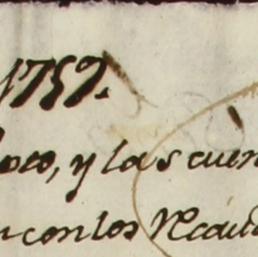 1759.
poco, y las cuen
n con los Recau